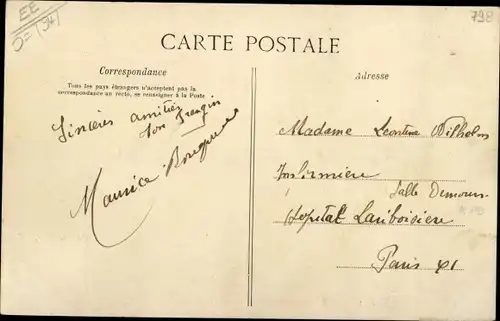 EE
798
CARTE POSTALE
Correspondance
Tous les pays étrangers n'acceptent pas la
correspondance au recto, se renseigner à la Poste
Sincères amitiés
ton frangin
Maurice
Adresse
Madame Leontine Wilhelm
Infirmière
Salle
Hopital Lariboisiere
Paris